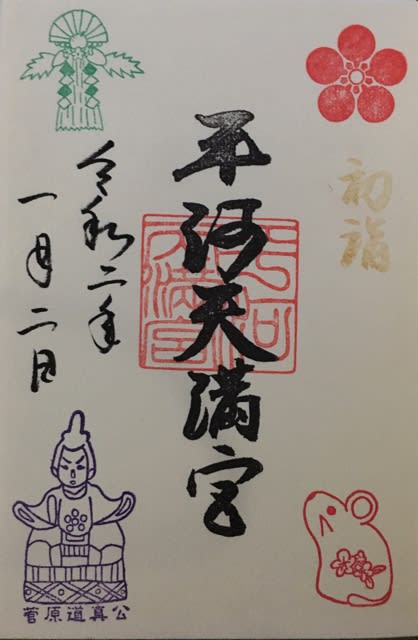 初詣
平河天満宮
令和二年
一月二日
平河天満宮
菅原道真公